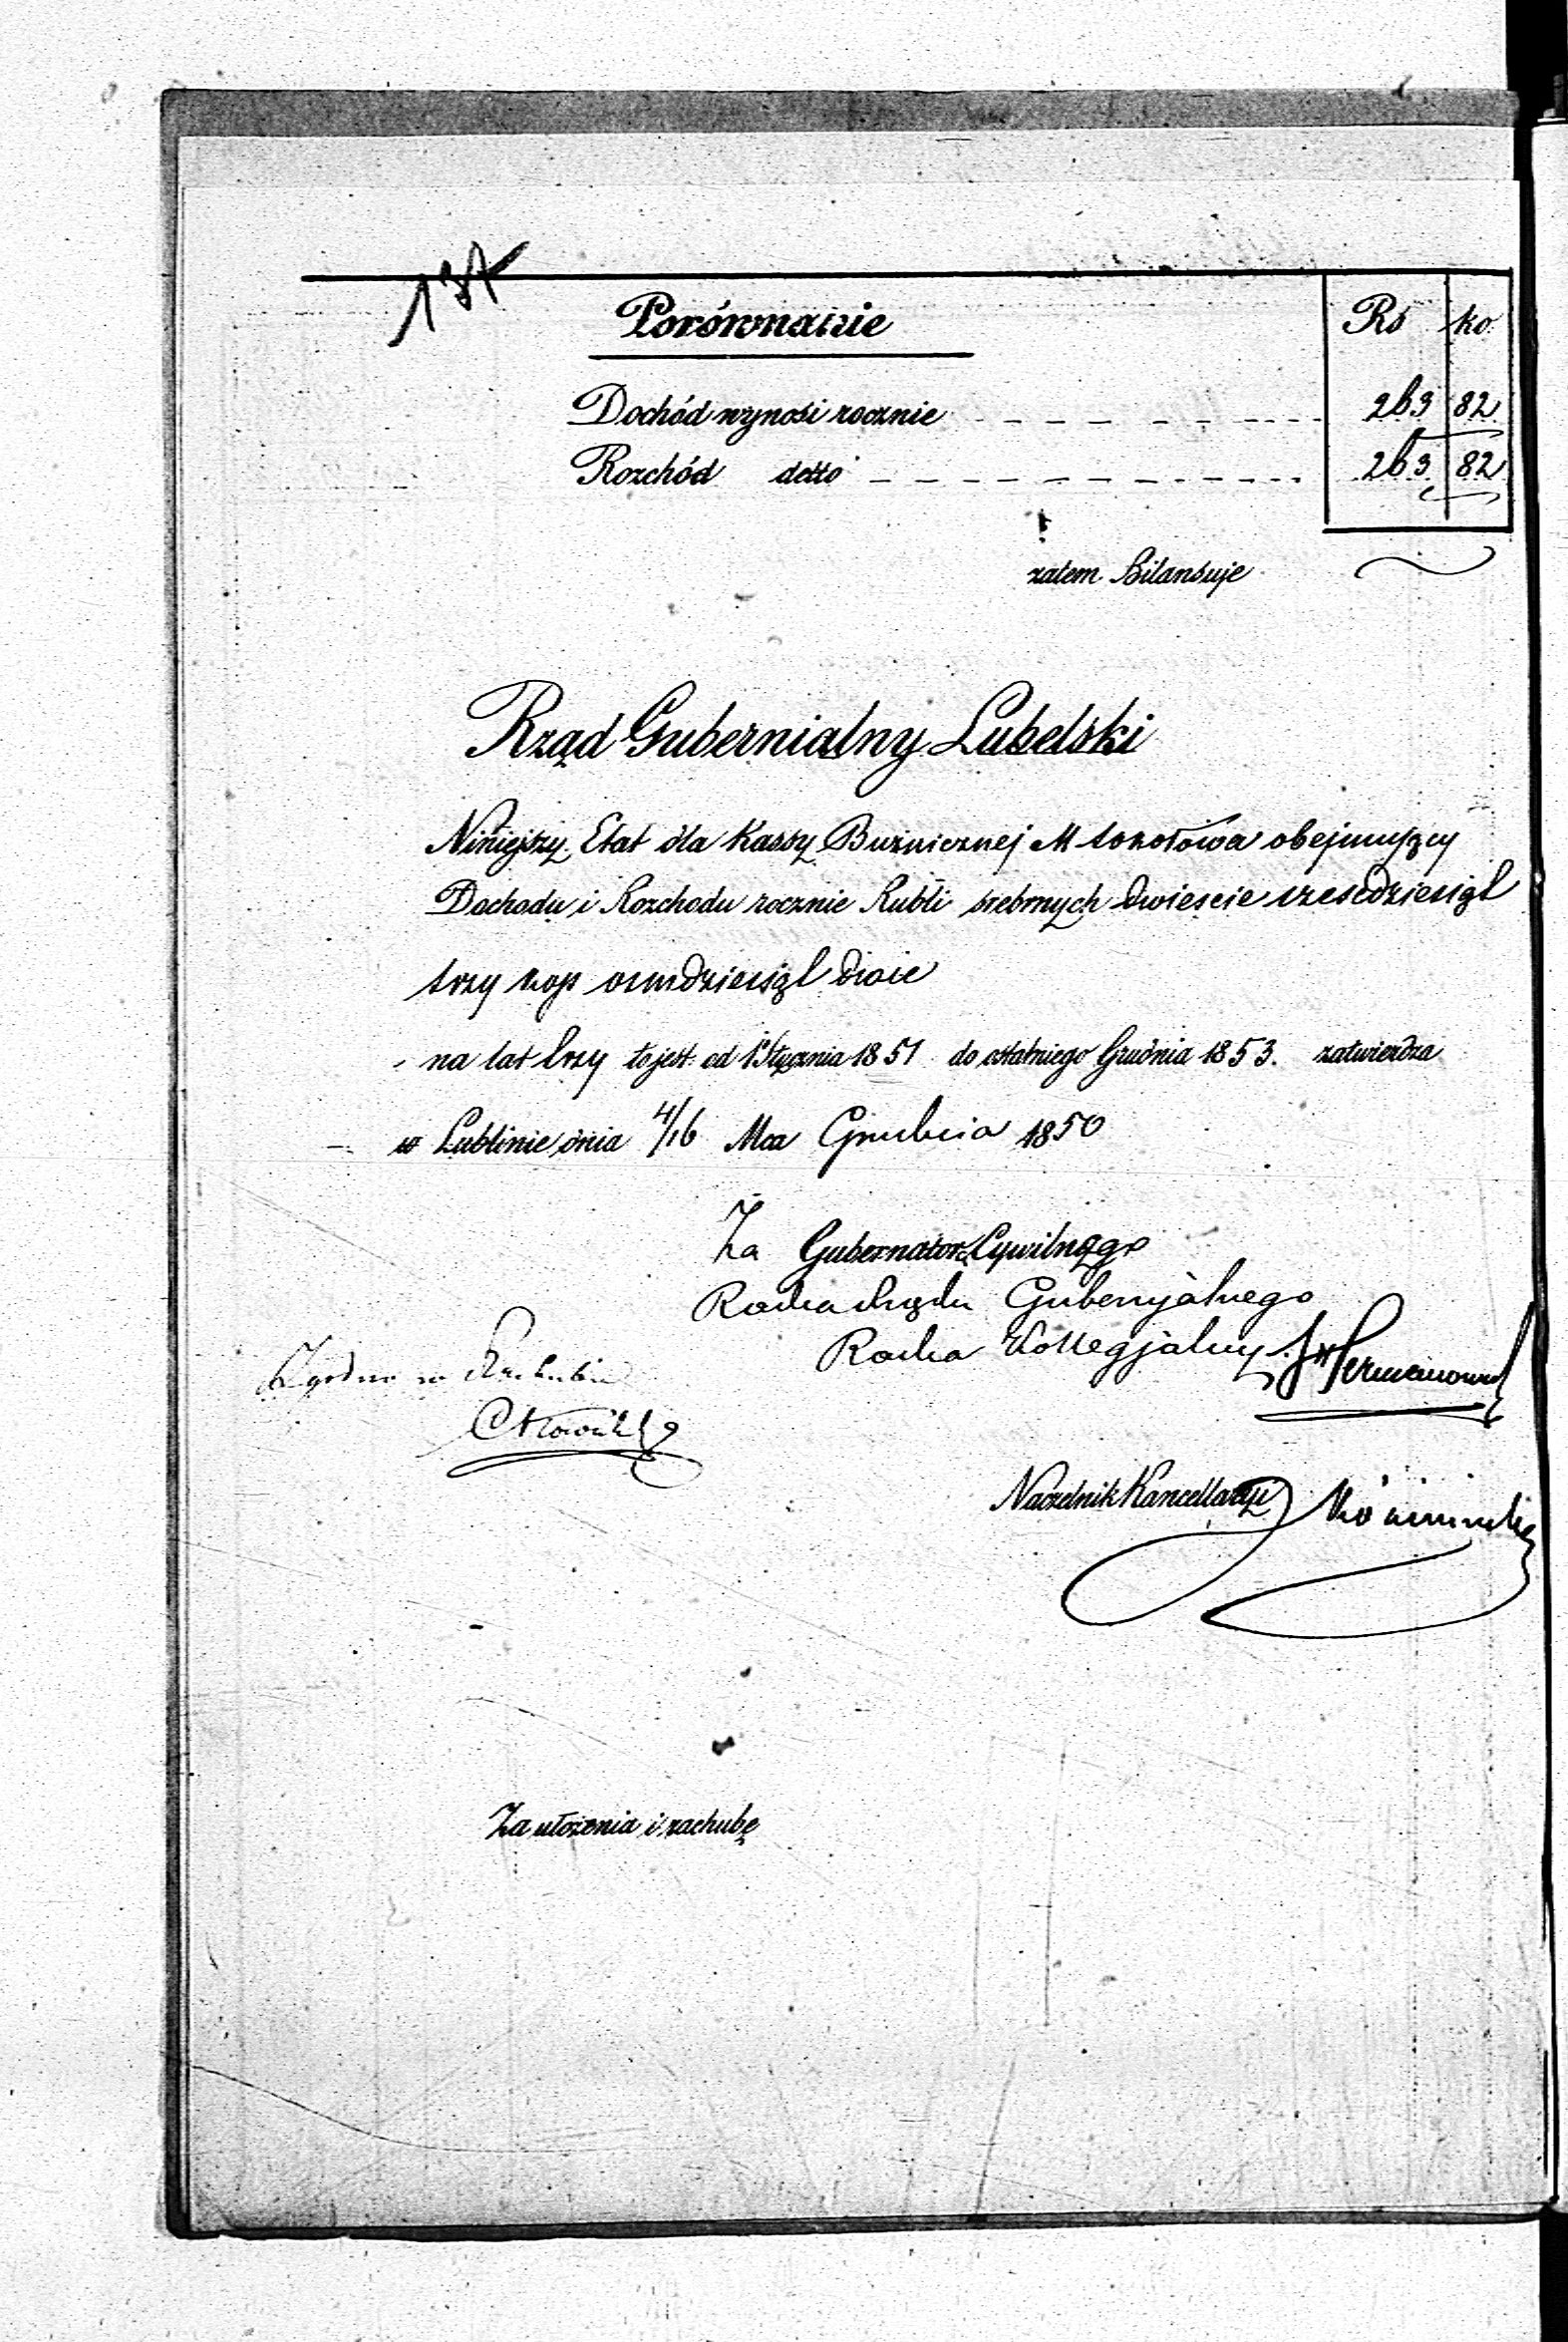 137
Porównanie
Rs ko
Dochód wynosi rocznie 263 82
Rozchód detto 263 82
zatem Bilansuje
Rząd Gubernialny Lubelski
Niniejszy Etat dla Kassy Bużnicznej M Sokołowa obejmujący
Dochodu i Rozchodu rocznie Rubli srebrnych dwieście sześćdziesiąt
trzy kop osmdziesiąt dwie
na lat trzy to jest od 1 Stycznia 1851 do ostatniego Grudnia 1853. zatwierdza
w Lublinie dnia 4/16 Mca Grudnia 1850
Za Gubernatora Cywilnego
Radca Rządu Gubernyalnego
Radca Kollegjalny
Zgodno w Rachubie
Naczelnik Kancellaryi
Za ułożenia i rachubę